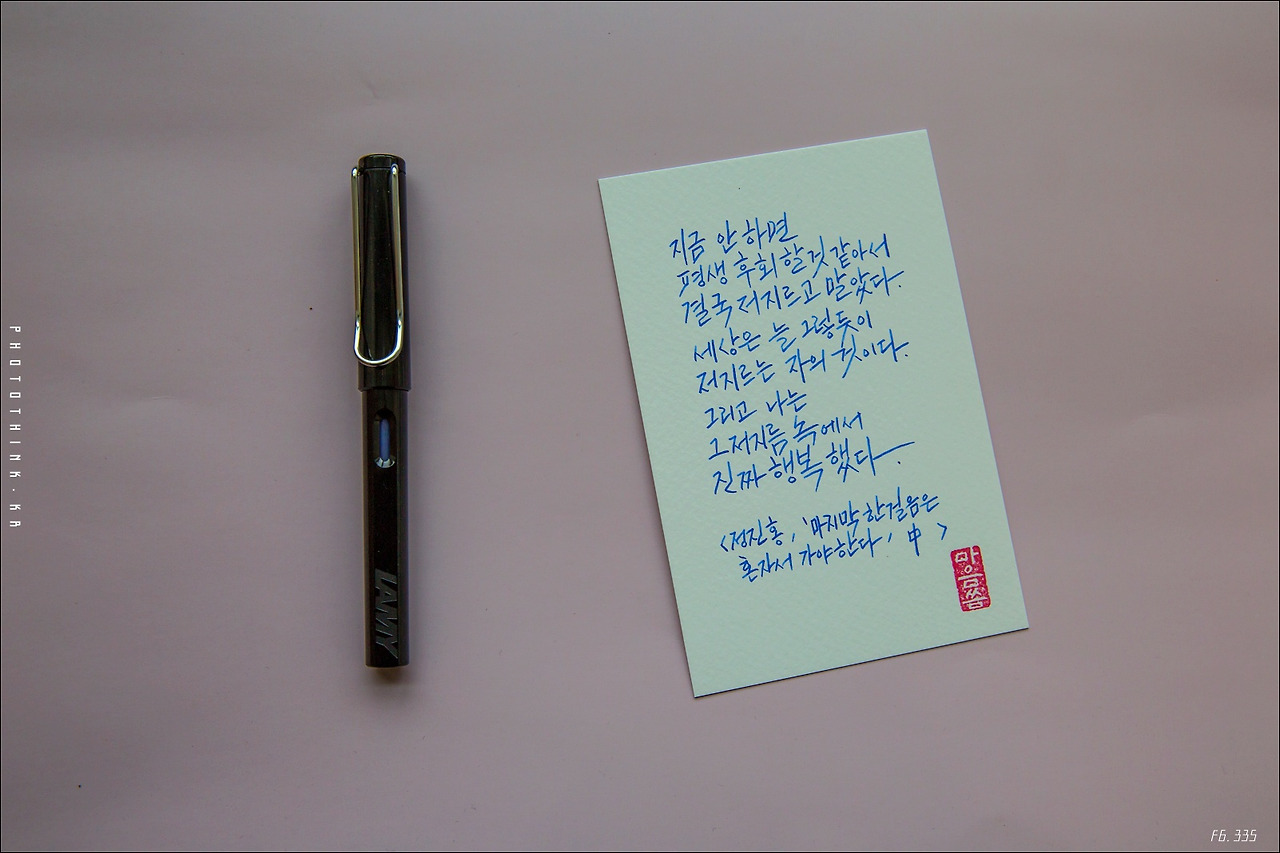 PHOTOTHINK.KR
LAMY
지금 안 하면
평생 후회 할것 같아서
결국 저지르고 말았다.
세상은 늘 그렇듯이
저지르는 자의 것이다.
그리고 나는
그 저지름 속에서
진짜 행복 했다.
<정진홍, '마지막 한걸음은
혼자서 가야한다' 中>
마음씀
FG. 335